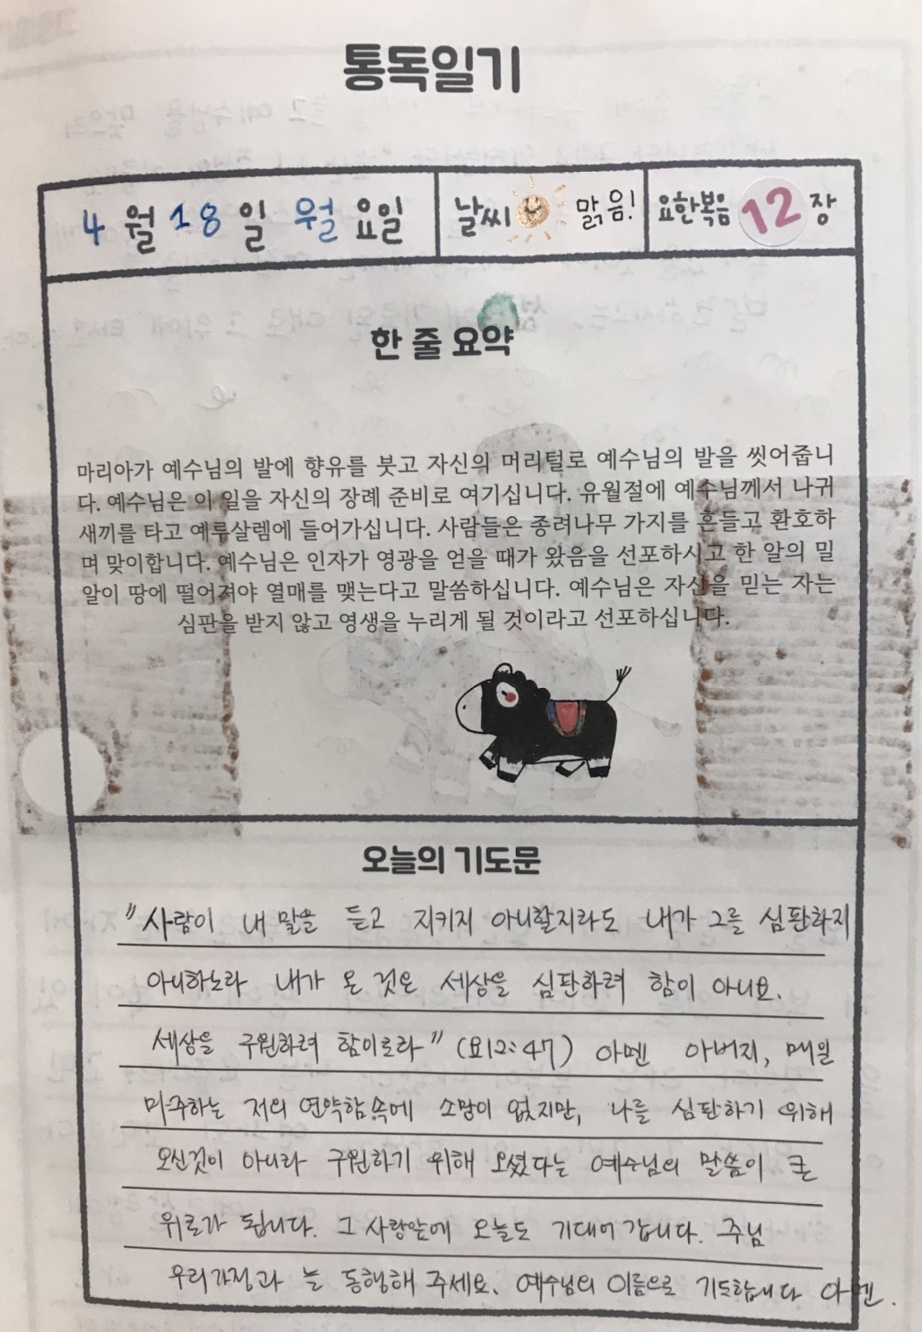 통독일기
4월 18일 월요일 날씨 맑음! 요한복음 12장
한 줄 요약
마리아가 예수님의 발에 향유를 붓고 자신의 머리털로 예수님의 발을 씻어줍니
다. 예수님은 이 일을 자신의 장례 준비로 여기십니다. 유월절에 예수님께서 나귀
새끼를 타고 예루살렘에 들어가십니다. 사람들은 종려나무 가지를 흔들고 환호하
며 맞이합니다. 예수님은 인자가 영광을 얻을 때가 왔음을 선포하시고 한 알의 밀
알이 땅에 떨어져야 열매를 맺는다고 말씀하십니다. 예수님은 자신을 믿는 자는
심판을 받지 않고 영생을 누리게 될 것이라고 선포하십니다.
오늘의 기도문
"사람이 내 말을 듣고 지키지 아니할지라도 내가 그를 심판하지
아니하노라 내가 온 것은 세상을 심판하려 함이 아니요.
세상을 구원하려 함이로라" (요12:47) 아멘 아버지, 매일
마주하는 저의 연약함속에 소망이 없지만, 나를 심판하기 위해
오신것이 아니라 구원하기 위해 오셨다는 예수님의 말씀이 큰
위로가 됩니다. 그 사랑앞에 오늘도 기대어 갑니다. 주님
우리가정과 늘 동행해 주세요. 예수님의 이름으로 기도합니다 아멘.